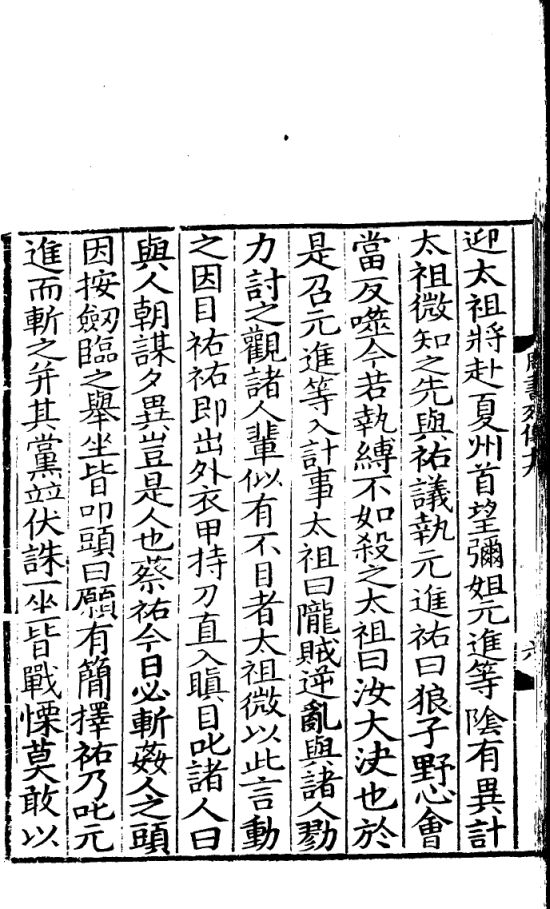 周書列傳九
六
迎太祖將赴夏州首望彌姐元進等陰有異計
太祖微知之先與祐議執元進祐曰狼子野心會
當反噬今若執縛不如殺之太祖曰汝大決也於
是召元進等入計事太祖曰隴賊逆亂與諸人勠
力討之觀諸人輩似有不同者太祖微以此言動
之因目祐祐即出外衣甲持刀直入瞋目叱諸人曰
與人朝謀夕異豈是人也蔡祐今日必斬姦人之頭
因按劒臨之舉坐皆叩頭曰願有簡擇祐乃叱元
進而斬之并其黨並伏誅一坐皆戰慄莫敢以